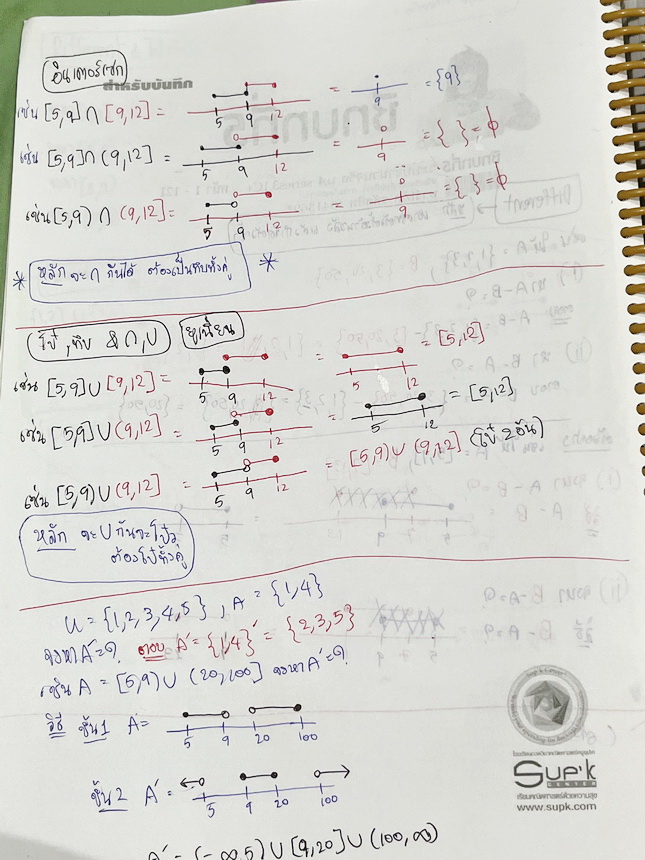 อินเตอร์เซก
สำหรับบันทึก
เช่น [5,9] ∩ [9,12] = 5 9 12 = 9 = {9}
เช่น [5,9] ∩ (9,12] = 5 9 12 = 9 = { } = ϕ
เช่น [5,9) ∩ (9,12] = 5 9 12 = 9 = { } = ϕ
* หลัก จะ ∩ กันได้ ต้องเป็นทึบทั้งคู่ *
โป๋, ทึบ & ∩, ∪ ยูเนี่ยน
เช่น [5,9] ∪ [9,12] = 5 9 12 = 5 12 = [5,12]
เช่น [5,9] ∪ (9,12] = 5 9 12 = 5 12 = [5,12]
เช่น [5,9) ∪ (9,12] = 5 9 12 = [5,9) ∪ (9,12] (โป๋ 2 อัน)
หลัก จะ ∪ กันจะโป๋
ต้องโป๋ทั้งคู่
U = {1,2,3,4,5}, A = {1,4}
จงหา A' = ? ตอบ A' = {1,4}' = {2,3,5}
เช่น A = [5,9) ∪ (20,100] จงหา A' = ?
วิธี ขั้น 1 A = 5 9 20 100
ขั้น 2 A' = 5 9 20 100
A' = (-∞,5) ∪ [9,20] ∪ (100,∞)
SUP'K
CENTER
เรียนคณิตศาสตร์ด้วยความสุข
www.supk.com